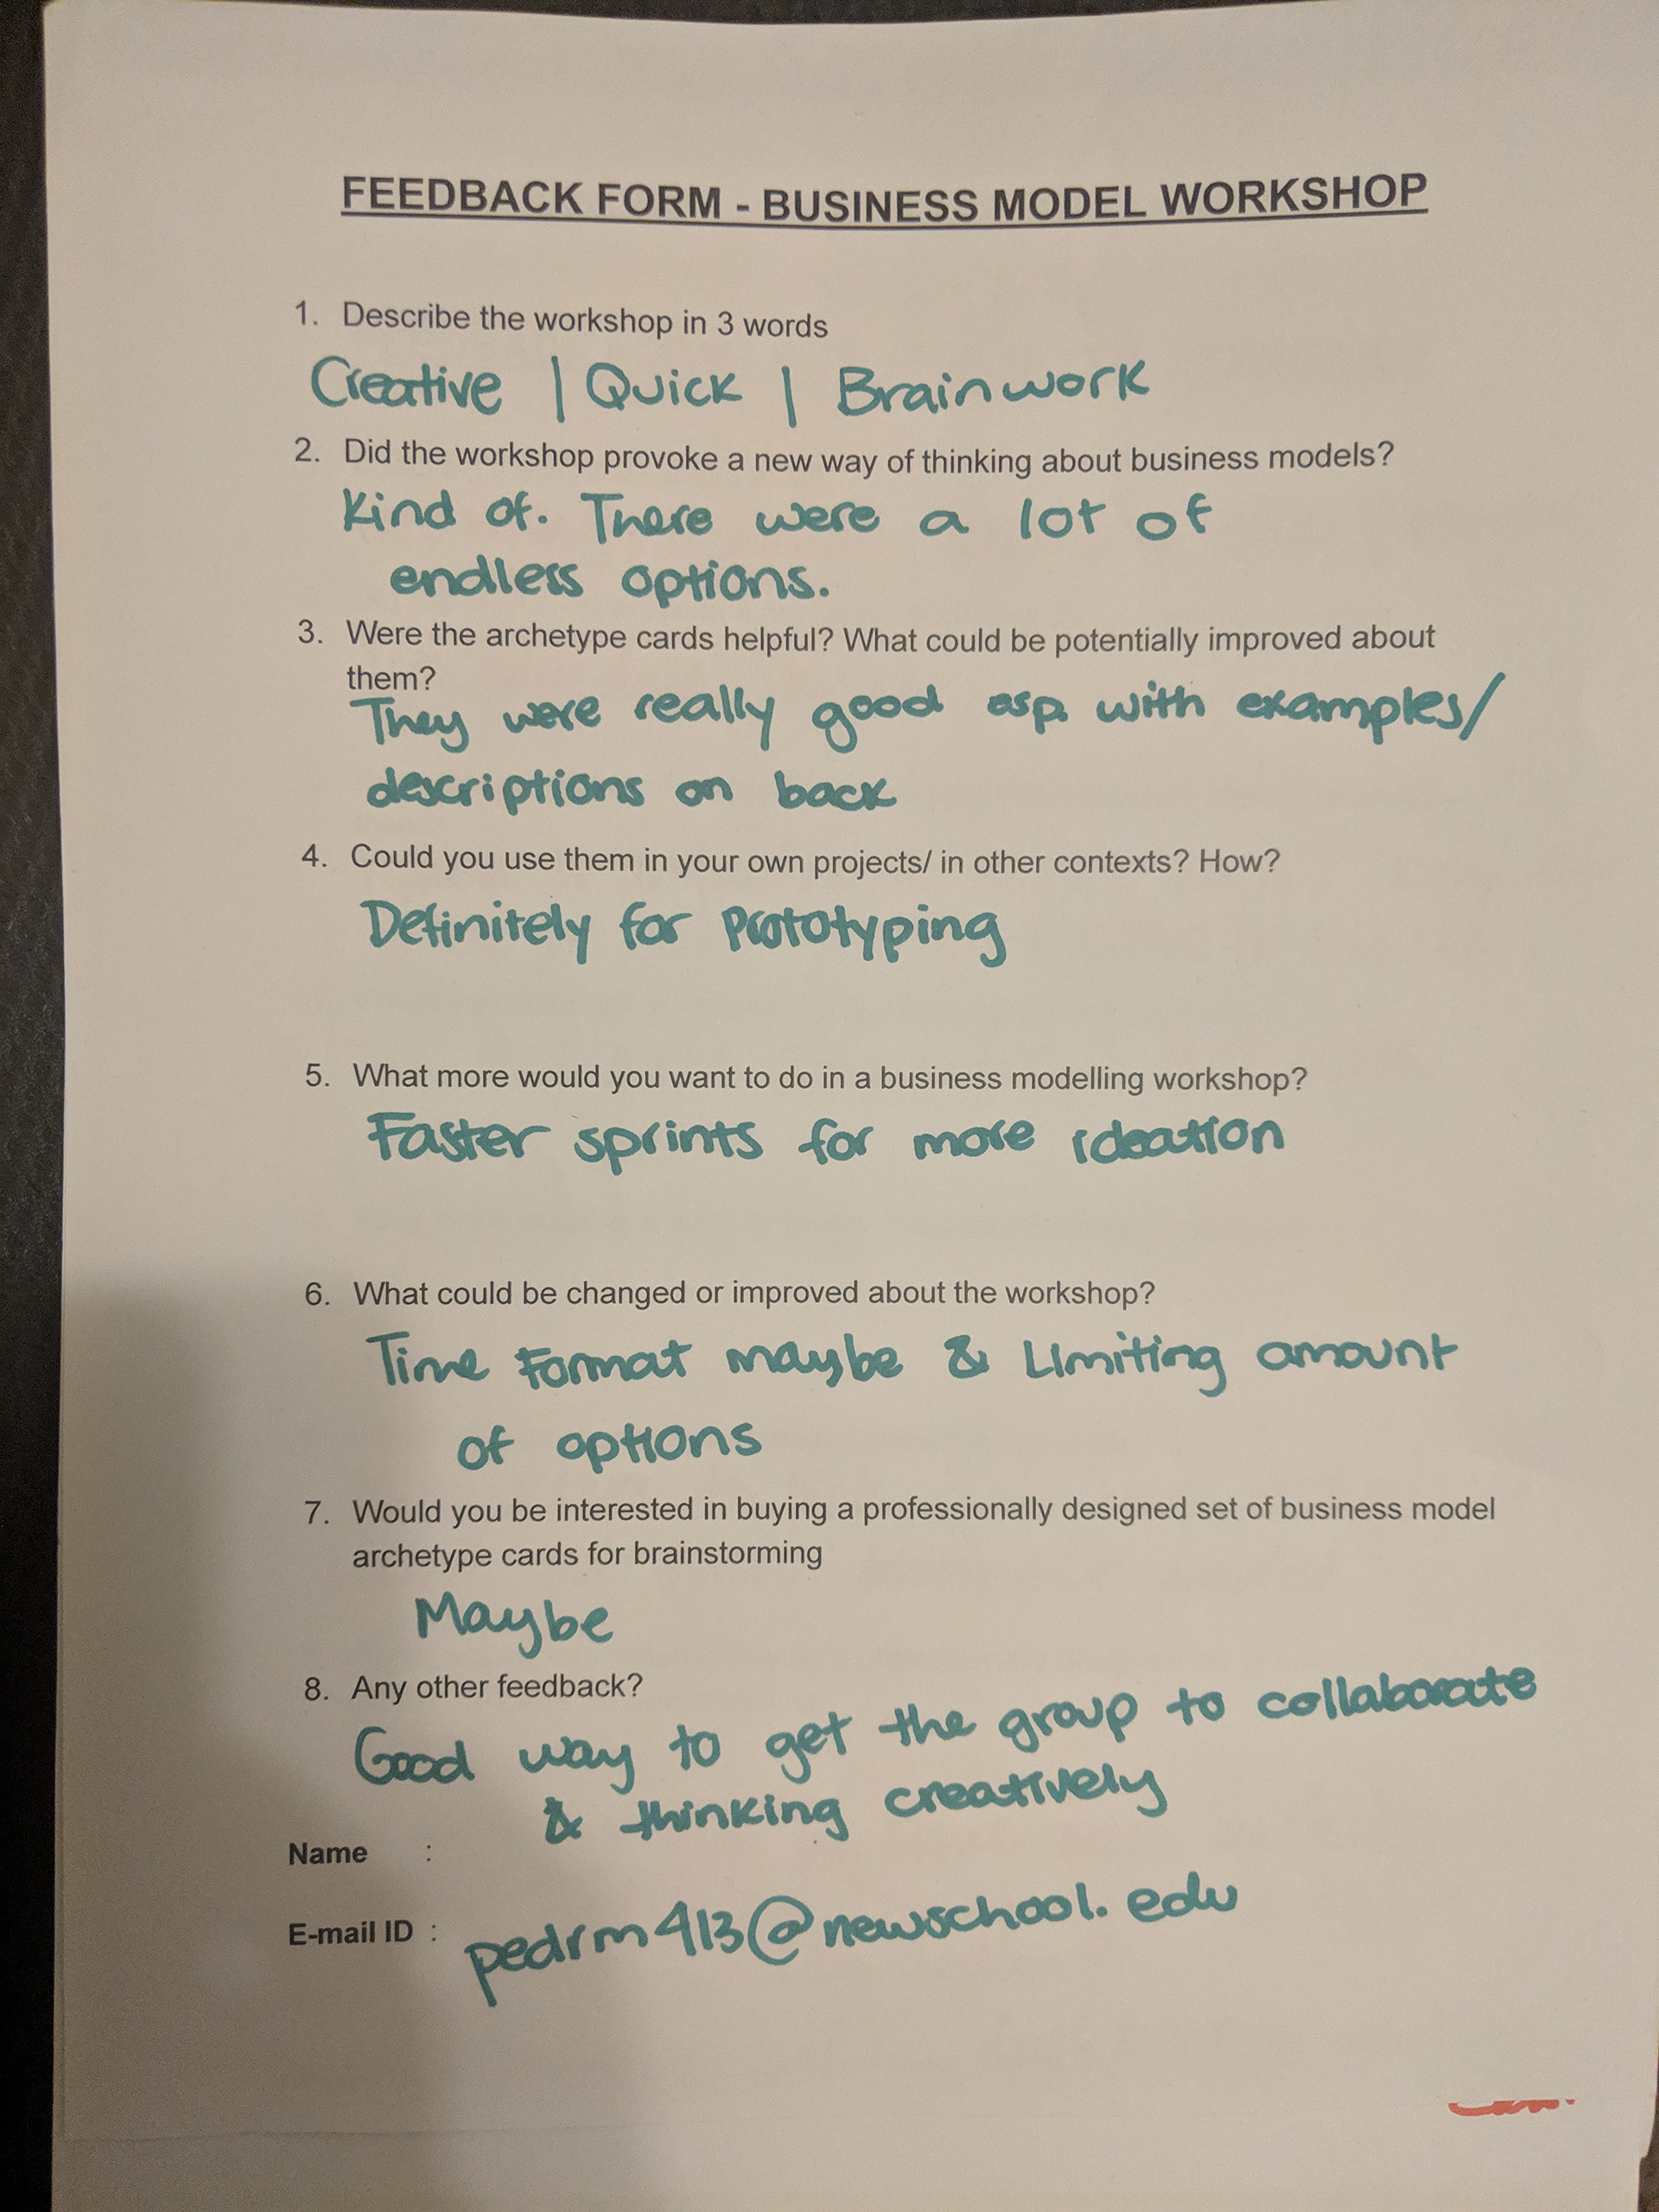 FEEDBACK FORM - BUSINESS MODEL WORKSHOP
1. Describe the workshop in 3 words
Creative | Quick | Brainwork
2. Did the workshop provoke a new way of thinking about business models?
Kind of. There were a lot of
endless options.
3. Were the archetype cards helpful? What could be potentially improved about
them?
They were really good esp. with examples/
descriptions on back
4. Could you use them in your own projects/ in other contexts? How?
Definitely for Prototyping
5. What more would you want to do in a business modelling workshop?
Faster sprints for more ideation
6. What could be changed or improved about the workshop?
Time Format maybe & Limiting amount
of options
7. Would you be interested in buying a professionally designed set of business model
archetype cards for brainstorming
Maybe
8. Any other feedback?
Good way to get the group to collaborate
& thinking creatively
Name :
E-mail ID : pedrm413@newschool.edu